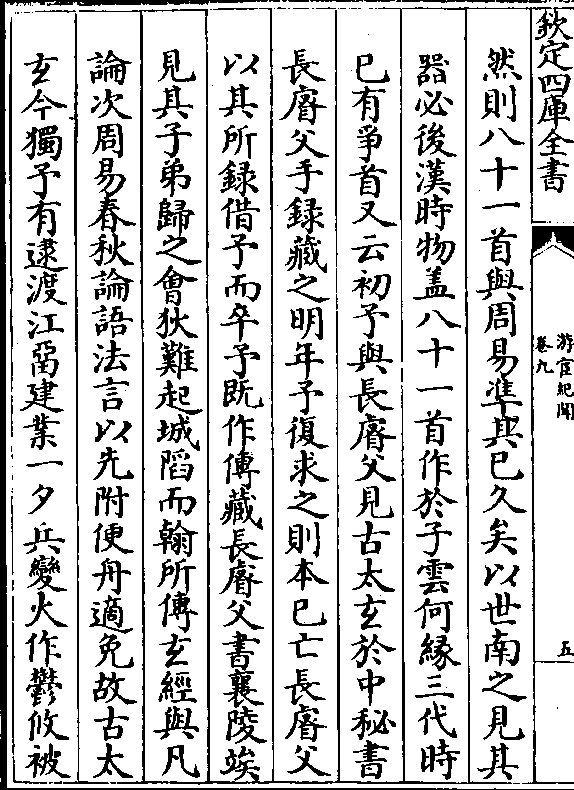 欽定四庫全書
游宦紀聞
卷九
五
然則八十一首與周易準其已久矣以世南之見其
器必後漢時物蓋八十一首作於子雲何緣三代時
已有爭首又云初予與長睿父見古太玄於中秘書
長睿父手録藏之明年予復求之則本已亡長睿父
以其所録借予而卒予既作傳藏長睿父書襄陵俟
見其子弟歸之會狄難起城䧟而翰所傳玄經與凡
論次周易春秋論語法言以先附便舟適免故古太
玄今獨予有逮渡江噩建業一夕兵變火作鬱攸被